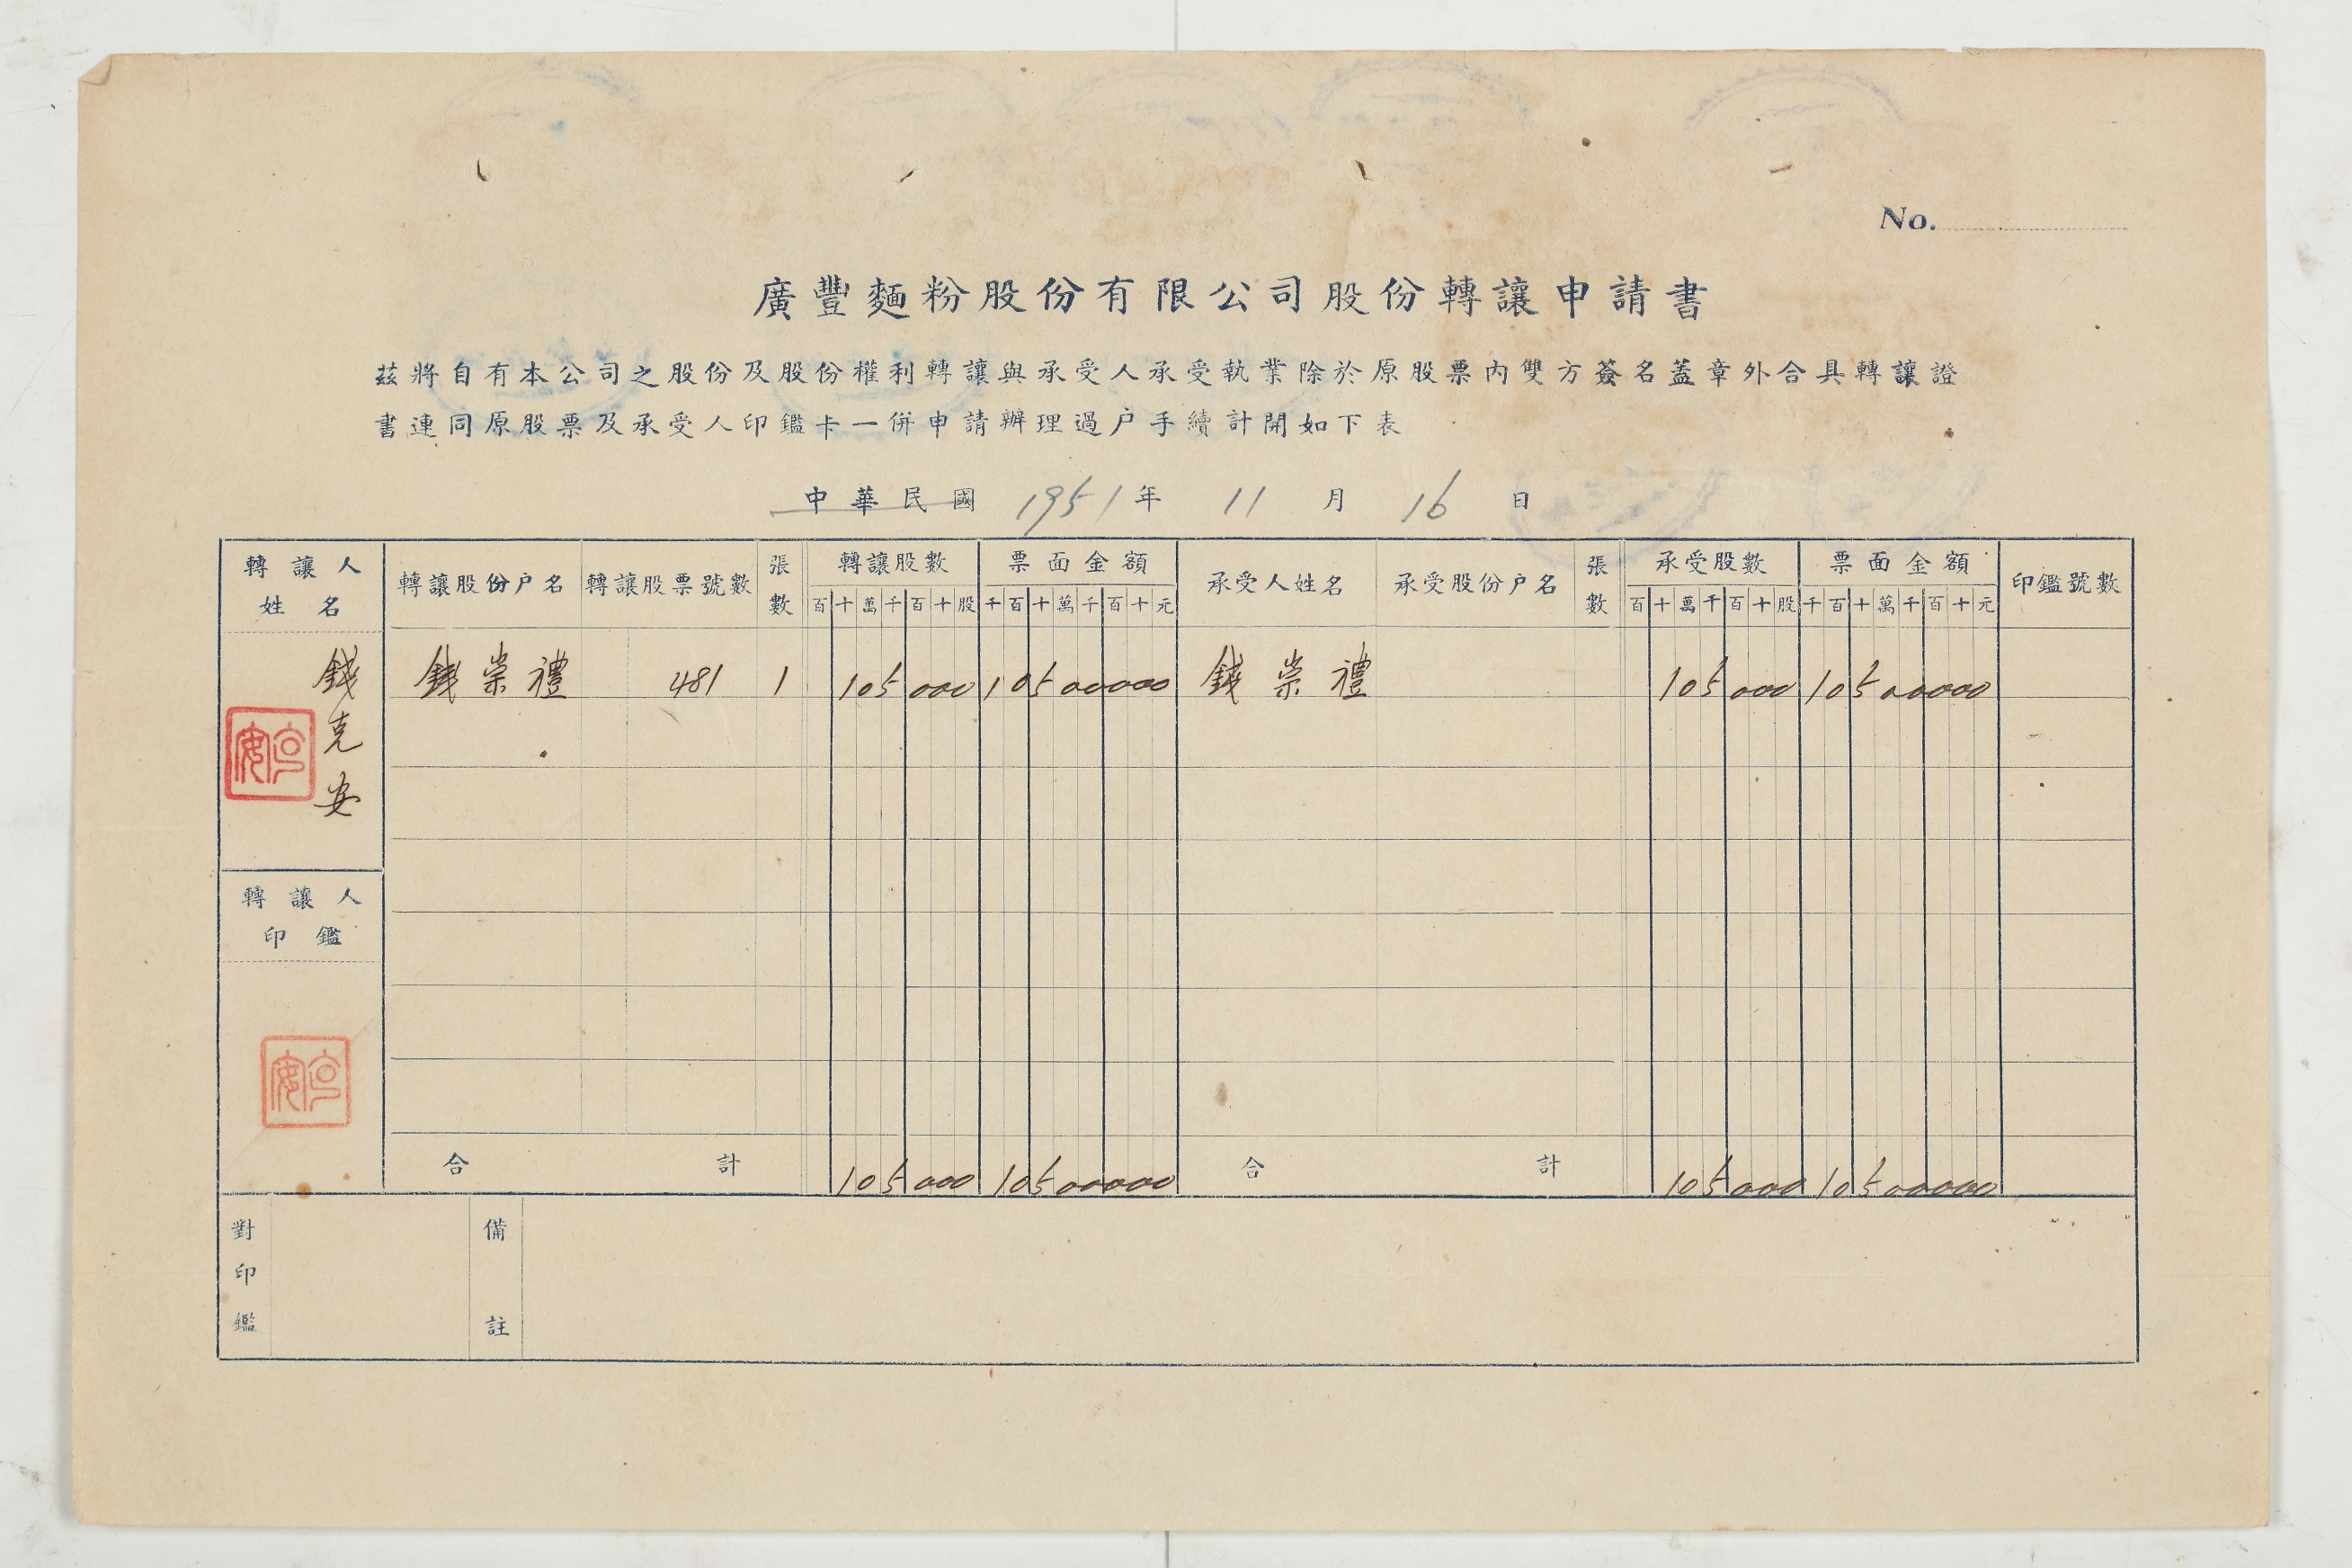 No.
廣豐麵粉股份有限公司股份轉讓申請書
茲將自有本公司之股份及股份權利轉讓與承受人承受執業除於原股票內雙方簽名蓋章外合具轉讓證
書連同原股票及承受人印鑑卡一併申請辦理過户手續計開如下表
中華民國 1951年 11月 16日
轉讓人姓名 轉讓股份户名 轉讓股票號數 張數 轉讓股數 票面金額 承受人姓名 承受股份户名 張數 承受股數 票面金額 印鑑號數
百十萬千百十股 千百十萬千百十元 百十萬千百十股 千百十萬千百十元
錢克安 錢崇禮 481 1 105000 10500000 錢崇禮 105000 10500000
克安
轉讓人印鑑
克安
合計 105000 10500000 合計 105000 10500000
對印鑑 備註